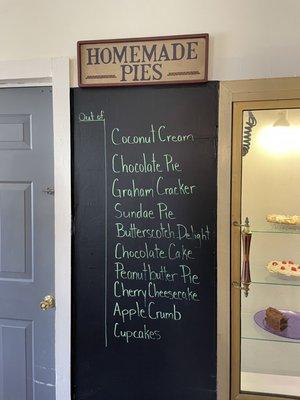 HOMEMADE
PIES
Out of
Coconut Cream
Chocolate Pie
Graham Cracker
Sundae Pie
Butterscotch Delight
Chocolate Cake
Peanutbutter Pie
Cherry Cheesecake
Apple Crumb
Cupcakes